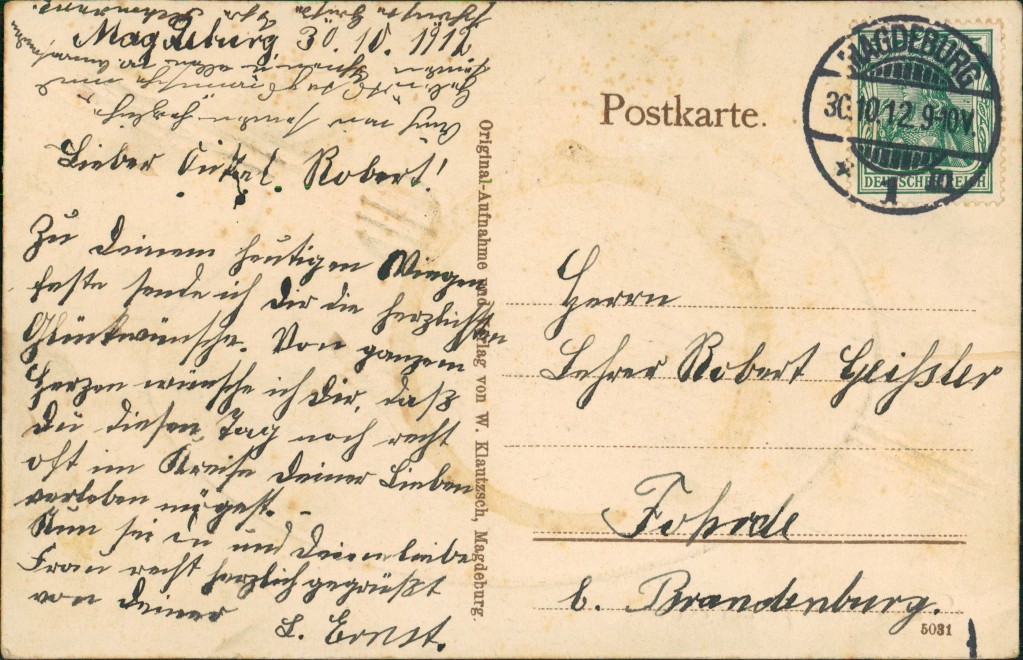 Magdeburg 30.10.1912
Lieber Onkel Robert!
Zu Deinem heutigen Wiegen
feste sende ich Dir die herzlichsten
Glückwünsche. Von ganzem
Herzen wünsche ich Dir, daß
Du diesen Tag noch recht
oft im Kreise Deiner Lieben
verleben mögest. -
Nun sei Du und Deine liebe
Frau recht herzlich gegrüßt
von Deiner
L. Ernst.
Auch von senden herzliche
Schönste Grüße
Original-Aufnahme und Verlag von W. Klautzsch, Magdeburg.
Postkarte.
MAGDEBURG
30.10.12. 9-10V.
* 1 m
DEUTSCHES REICH
Herrn
Lehrer Robert Geißler
Fohrde
b. Brandenburg.
5031